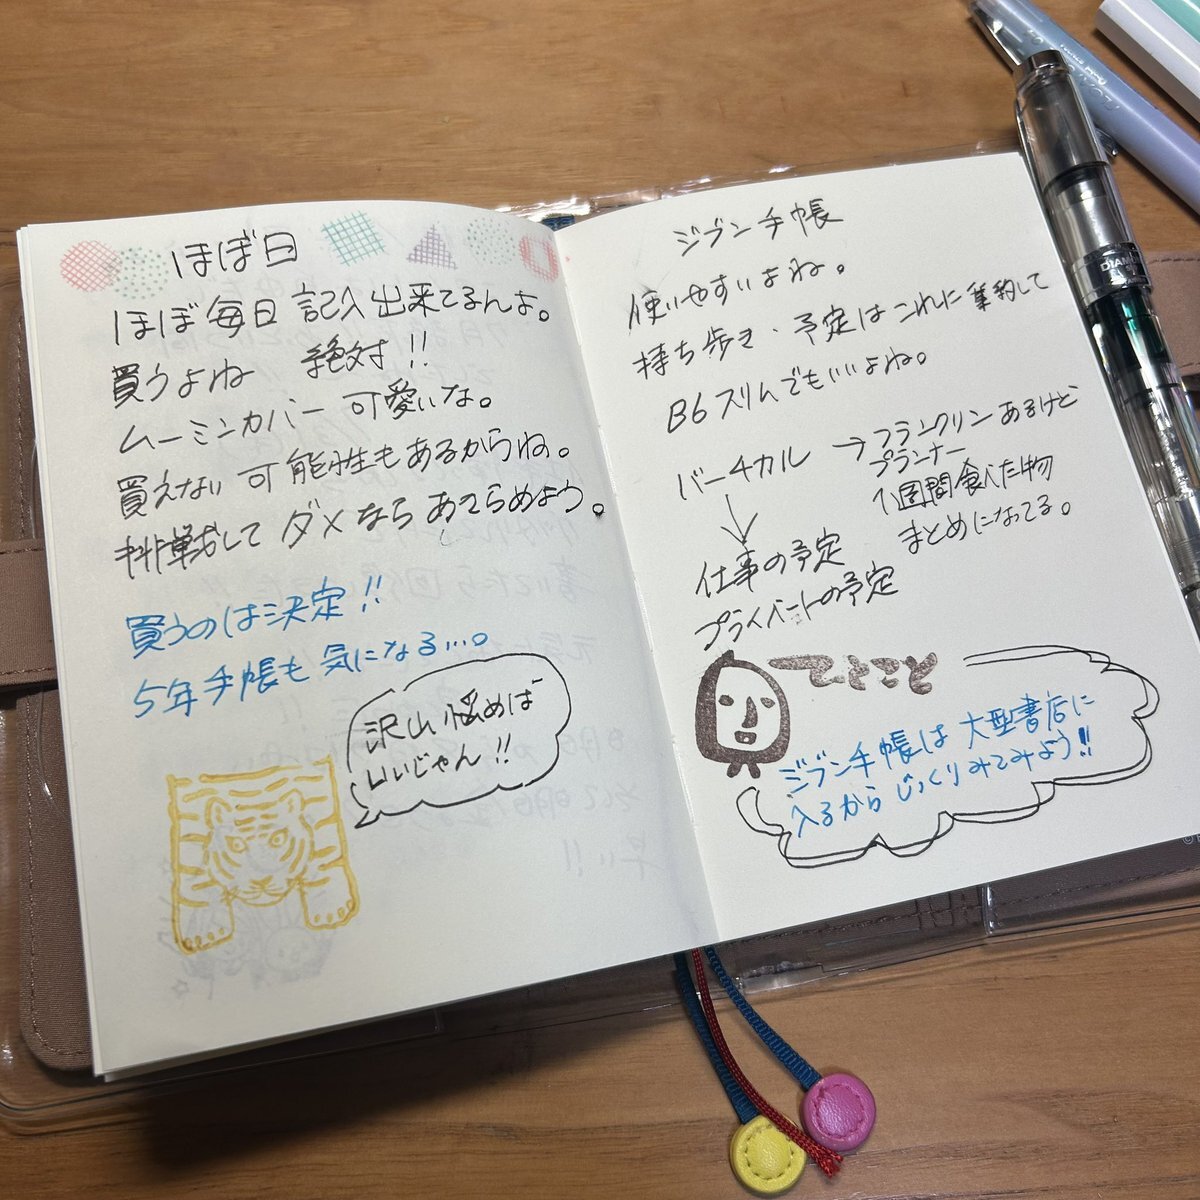 ほぼ日
ほぼ毎日記入出来てるんよ。
買うよね 絶対!!
ムーミンカバー可愛いな。
買えない可能性もあるからね。
挑戦してダメならあきらめよう。
買うのは決定!!
5年手帳も気になる…。
沢山悩めば
いいじゃん!!
ジブン手帳
使いやすいよね。
持ち歩き・予定はこれに集約して
B6スリムでもいいよね。
バーチカル → フランクリンあるけど
プランナー
1週間食べた物
まとめになってる。
仕事の予定
プライベートの予定
ひとこと
ジブン手帳は大型書店に
入るからじっくりみてみよう!!